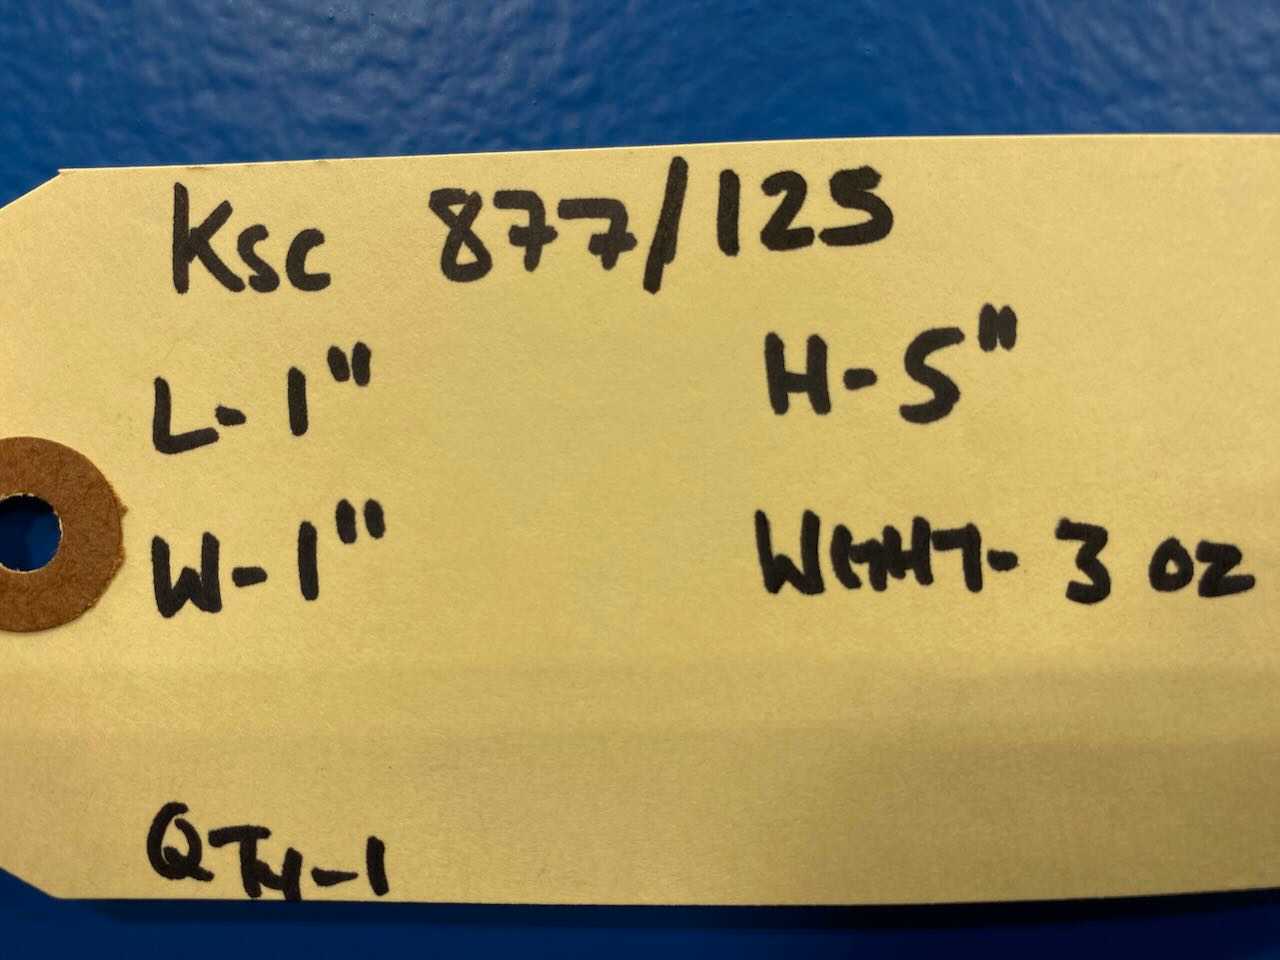 Ksc 877/125
L-1" H-5"
W-1" WGHT-3 oz
QTY-1